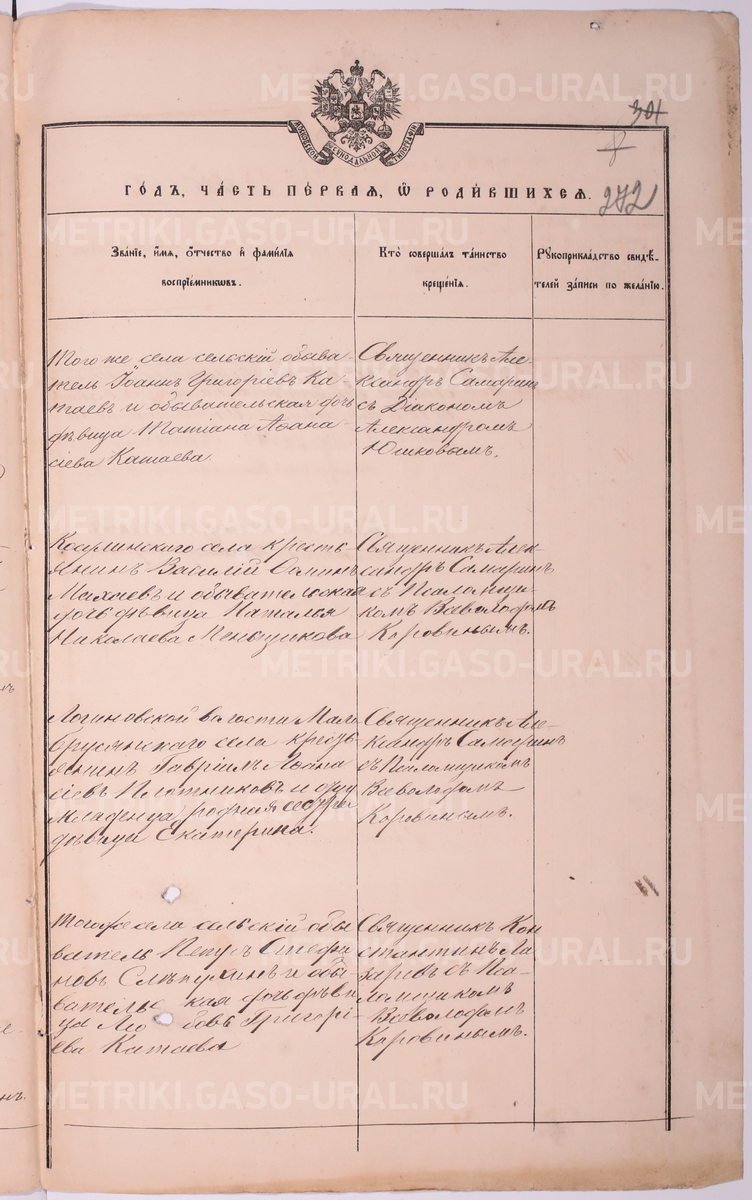 METRIKI.GASO-URAL.RU
301
272
МОСКОВСКОЙ СѴНОДАЛЬНОЙ ТИПОГРАФІИ
ГОДЪ, ЧАСТЬ ПЕРВАЯ, Ѡ РОДИВШИХСЯ.
Званіе, имя, отчество и фамилія
воспріемниковъ.
Кто совершалъ таинство
крещенія.
Рукоприкладство свидѣ-
телей записи по желанію.
Того же села сельскій обыва-
тель Іоаннъ Григоріевъ Ка-
таевъ и обывательская дочь
дѣвица Татіана Аѳана-
сіева Катаева.
Священникъ Але-
ксандръ Самаринъ
съ Діакономъ
Александромъ
Юшковымъ.
села кресть-
янинъ Василій
и обывательская
дочь дѣвица Наталья
Николаева Меньщикова
Священникъ Алек-
сандръ Самаринъ
съ Псаломщи-
комъ Всеволодомъ
Коровинымъ.
Логиновской волости Мало
брусянскаго села кресть
янинъ Гавріилъ Аѳана
сіевъ Плотниковъ и
младенца родная сестра
дѣвица Екатерина.
Священникъ Але-
ксандръ Самаринъ
съ Псаломщикомъ
Всеволодомъ
Коровинымъ.
Тогоже села сельскій обы
ватель Петръ Стефа
новъ Слѣпухинъ и обы
вательс кая дочь дѣви
ца Лю бовь Григорі-
ева Катаева
Священникъ Кон
стантинъ Ла
заревъ съ Пса-
ломщикомъ
Всеволодомъ
Коровинымъ.